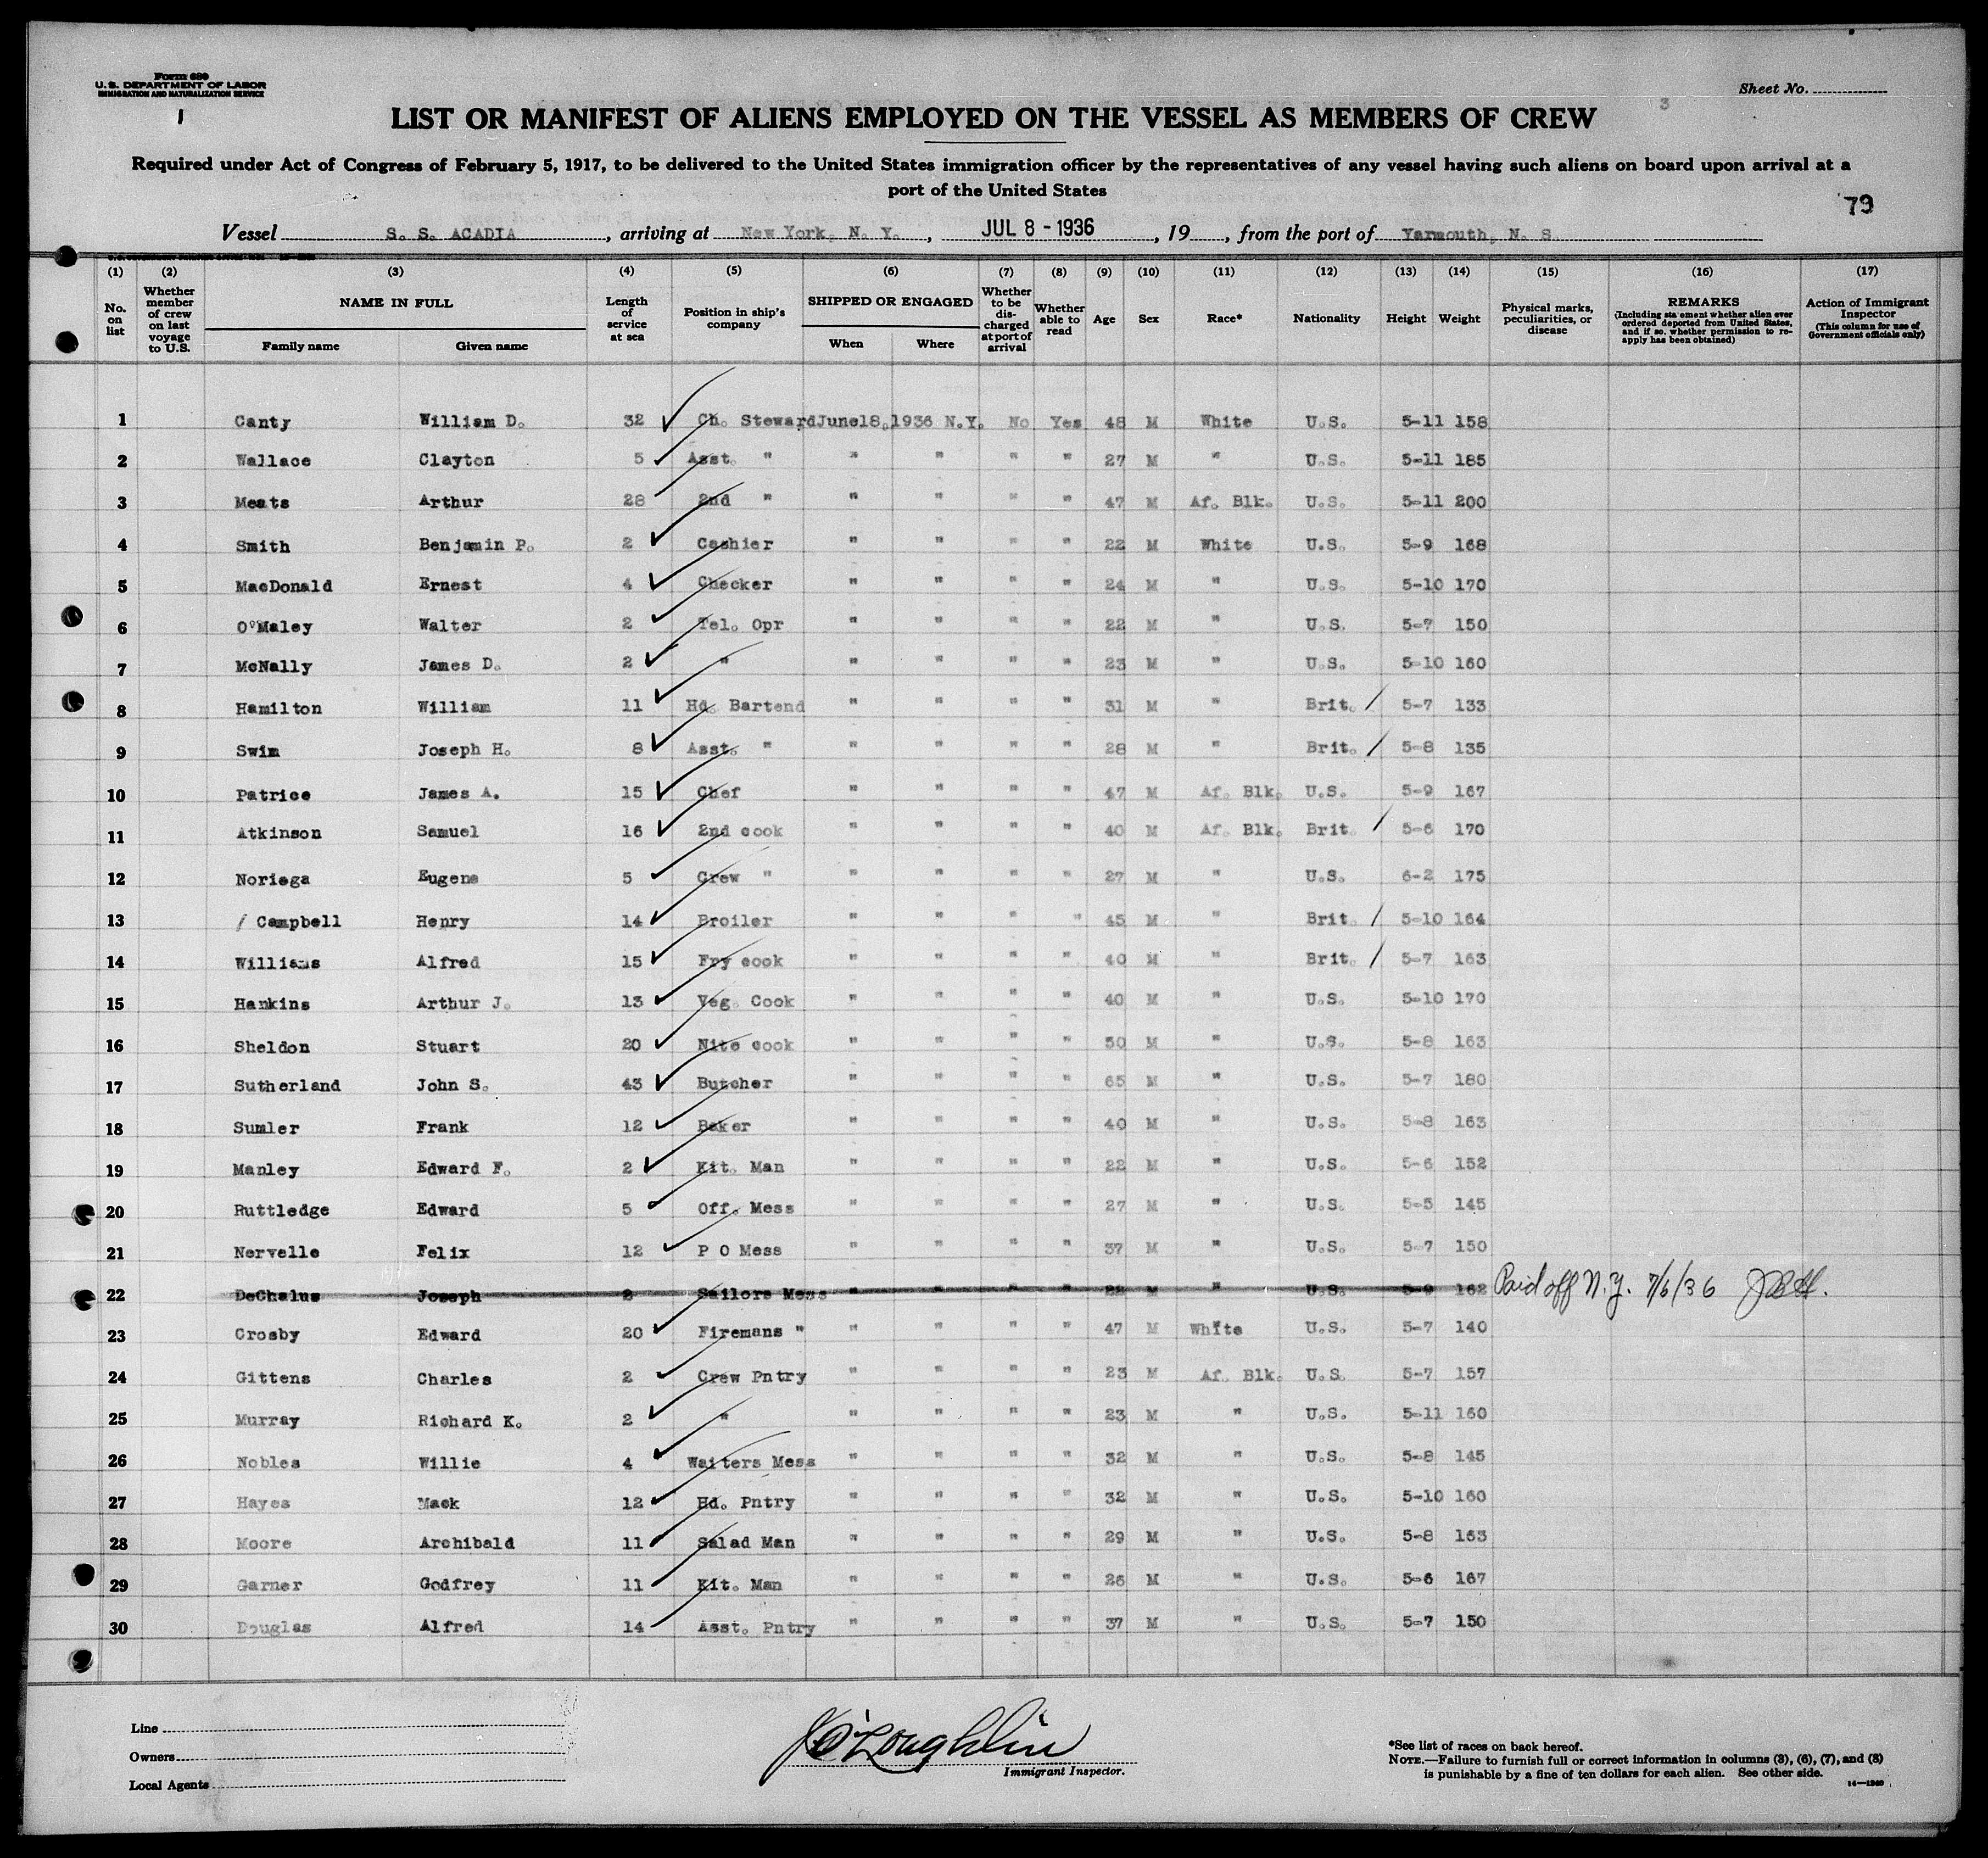 Form 689
U. S. DEPARTMENT OF LABOR
IMMIGRATION AND NATURALIZATION SERVICE
1
Sheet No.
3
LIST OR MANIFEST OF ALIENS EMPLOYED ON THE VESSEL AS MEMBERS OF CREW
Required under Act of Congress of February 5, 1917, to be delivered to the United States immigration officer by the representatives of any vessel having such aliens on board upon arrival at a
port of the United States
79
Vessel S. S. ACADIA, arriving at New York, N. Y., JUL 8 - 1936, 19, from the port of Yarmouth, N. S.
(1) (2) (3) (4) (5) (6) (7) (8) (9) (10) (11) (12) (13) (14) (15) (16) (17)
No. on list Whether member of crew on last voyage to U.S. NAME IN FULL Family name Given name Length of service at sea Position in ship's company SHIPPED OR ENGAGED When Where Whether to be discharged at port of arrival Whether able to read Age Sex Race* Nationality Height Weight Physical marks, peculiarities, or disease REMARKS (Including statement whether alien ever ordered deported from United States, and if so, whether permission to reapply has been obtained) Action of Immigrant Inspector (This column for use of Government officials only)
1 Canty William D. 32 Ch. Steward June18,1936 N.Y. No Yes 48 M White U.S. 5-11 158
2 Wallace Clayton 5 Asst. " " " " " 27 M " U.S. 5-11 185
3 Meats Arthur 28 2nd " " " " " 47 M Af. Blk. U.S. 5-11 200
4 Smith Benjamin P. 2 Cashier " " " " 22 M White U.S. 5-9 168
5 MacDonald Ernest 4 Checker " " " " 24 M " U.S. 5-10 170
6 O'Maley Walter 2 Tel. Opr " " " " 22 M " U.S. 5-7 150
7 McNally James D. 2 " " " " " 23 M " U.S. 5-10 160
8 Hamilton William 11 Hd. Bartend " " " " 31 M " Brit. / 5-7 133
9 Swim Joseph H. 8 Asst. " " " " " 28 M " Brit. / 5-8 135
10 Patrice James A. 15 Chef " " " " 47 M Af. Blk. U.S. 5-9 167
11 Atkinson Samuel 16 2nd cook " " " " 40 M Af. Blk. Brit. / 5-6 170
12 Noriega Eugene 5 Crew " " " " " 27 M " U.S. 6-2 175
13 / Campbell Henry 14 Broiler " " " " 45 M " Brit. / 5-10 164
14 Williams Alfred 15 Fry cook " " " " 40 M " Brit. / 5-7 163
15 Hankins Arthur J. 13 Veg. Cook " " " " 40 M " U.S. 5-10 170
16 Sheldon Stuart 20 Nite cook " " " " 50 M " U.S. 5-8 163
17 Sutherland John S. 43 Butcher " " " " 65 M " U.S. 5-7 180
18 Sumler Frank 12 Baker " " " " 40 M " U.S. 5-8 163
19 Manley Edward F. 2 Kit. Man " " " " 22 M " U.S. 5-6 152
20 Ruttledge Edward 5 Off. Mess " " " " 27 M " U.S. 5-5 145
21 Nervelle Felix 12 P O Mess " " " " 37 M " U.S. 5-7 150
22 DeChalus Joseph 2 Sailors Mess " " " " 22 M " U.S. 5-9 162 Paid off N.Y. 7/6/36 JBH.
23 Crosby Edward 20 Firemans " " " " " 47 M White U.S. 5-7 140
24 Gittens Charles 2 Crew Pntry " " " " 23 M Af. Blk. U.S. 5-7 157
25 Murray Richard K. 2 " " " " " 23 M " U.S. 5-11 160
26 Nobles Willie 4 Waiters Mess " " " " 32 M " U.S. 5-8 145
27 Hayes Mack 12 Hd. Pntry " " " " 32 M " U.S. 5-10 160
28 Moore Archibald 11 Salad Man " " " " 29 M " U.S. 5-8 163
29 Garner Godfrey 11 Kit. Man " " " " 26 M " U.S. 5-6 167
30 Douglas Alfred 14 Asst. Pntry " " " " 37 M " U.S. 5-7 150
Line
Owners
Local Agents
J O'Loughlin
Immigrant Inspector.
*See list of races on back hereof.
NOTE.—Failure to furnish full or correct information in columns (3), (6), (7), and (8)
is punishable by a fine of ten dollars for each alien. See other side.